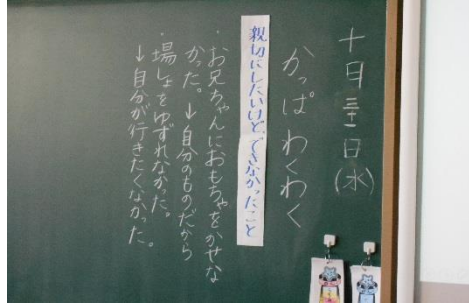 十月三十一日(水)
かっぱわくわく
親切にしたいけど、できなかったこと
・お兄ちゃんにおもちゃをかせな
かった。↓自分のものだから
・場しょをゆずれなかった。
↓自分が行きたくなかった。